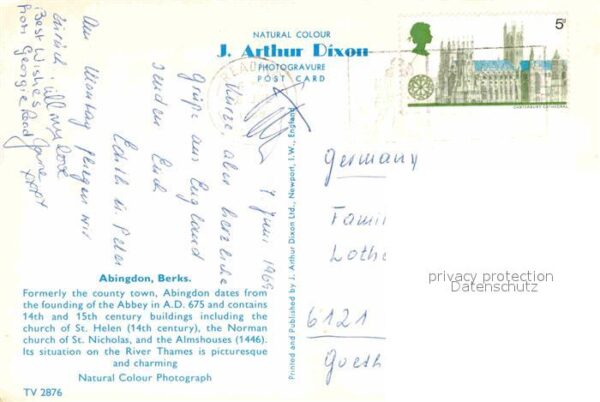 NATURAL COLOUR
J. Arthur Dixon
PHOTOGRAVURE
POST CARD
5d
CANTERBURY CATHEDRAL
7 Juni 1969
Kurze, aber herzliche
Grüße aus England
senden Euch
Edith u. Peter
Am Montag fliegen wir
zurück! all my love
Best Wishes
from Georgie and Jane
Germany
Famil
Lothe
6121
Goeth
privacy protection
Datenschutz
Printed and Published by J. Arthur Dixon Ltd., Newport, I.W., England
Abingdon, Berks.
Formerly the county town, Abingdon dates from
the founding of the Abbey in A.D. 675 and contains
14th and 15th century buildings including the
church of St. Helen (14th century), the Norman
church of St. Nicholas, and the Almshouses (1446).
Its situation on the River Thames is picturesque
and charming
Natural Colour Photograph
TV 2876